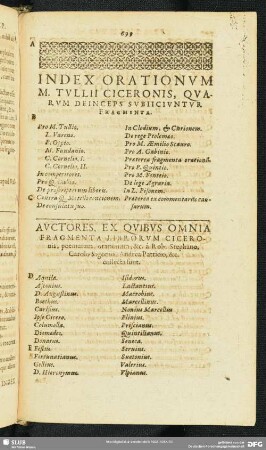 699
A
INDEX ORATIONVM
M. TVLLII CICERONIS, QVA-
RVM DEINCEPS SVBIICIVNTVR
FRAGMENTA.
B
Pro M. Tullio.
L. Vareno.
P. Oppio.
M. Fundanio.
C. Cornelio. I.
C. Cornelio. II.
In competitores.
Pro Q. Gallio.
De proscriptorum liberis.
C Contra Q. Metelli contionem.
In Clodium, & Curionem.
De rege Ptolemæo.
Pro M. Æmilio Scauro.
Pro A. Gabinio.
Præterea fragmenta orationū.
Pro P. Quintio.
Pro M. Fonteio.
De lege Agraria.
In L. Pisonem.
Præterea ex commentariis cau-
sarum.
AVCTORES, EX QVIBVS OMNIA
FRAGMENTA LIBRORVM CICERO-
nis, poematum, orationum, &c. à Rob. Stephano,
Carolo Sigonio, Andrea Patricio, &c.
collecta sunt.
D Aquila.
Asconius.
D. Augustinus.
Boethius.
Carisius.
Ipse Cicero.
Columella.
Diomedes.
Donatus.
E Festus.
Fortunatianus.
Gellius.
D. Hieronymus.
Isidorus.
Lactantius.
Macrobius.
Marcellinus.
Nonius Marcellus
Plinius.
Priscianus.
Quintilianus.
Seneca.
Seruius.
Suetonius.
Valerius.
Vlpianus.
SLUB